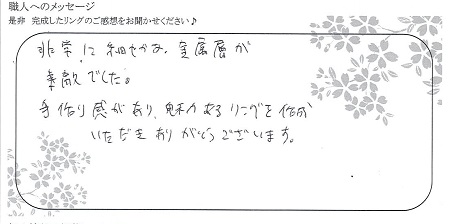 職人へのメッセージ
是非 完成したリングのご感想をお聞かせください♪
非常に細やかな金属層が
素敵でした。
手作り感があり、魅力あるリングを作成
いただきありがとうございます。